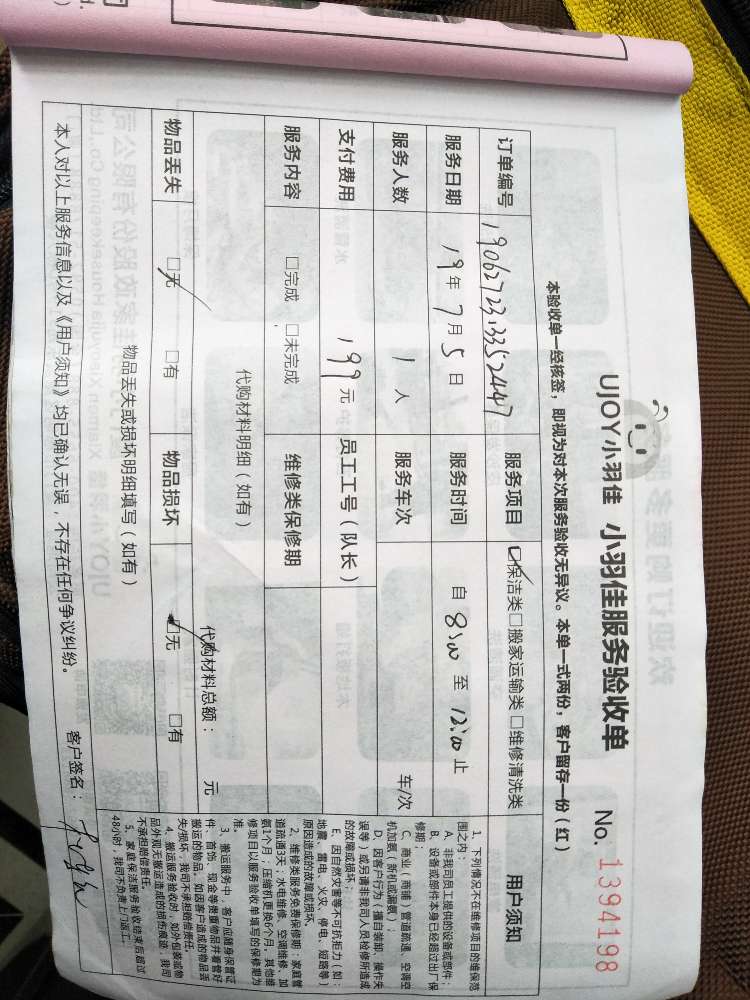 UJOY小羽佳 小羽佳服务验收单 No. 1394198
本验收单一经核签，即视为对本次服务验收无异议。本单一式两份，客户留存一份（红）
订单编号 服务项目 ☑保洁类□搬家运输类□维修清洗类
服务日期 19年7月5日 服务时间 自 8:00 至 12:00 止
服务人数 1 人 服务车次 车/次
支付费用 199 元 员工工号（队长）
服务内容 □完成 □未完成 维修类保修期
代购材料明细（如有）
代购材料总额： 元
物品丢失 ☑无 □有 物品损坏 ☑无 □有
物品丢失或损坏明细填写（如有）
本人对以上服务信息以及《用户须知》均已确认无误，不存在任何争议纠纷。 客户签名：
用户须知
1、下列情况不在维修项目的维保范
围之内：
A、非我司员工提供的设备或部件；
B、设备或部件本身已经超过出厂保
修期；
C、商业（商铺）管道疏通、空调空
机加氨（新机或漏氨）；
D、因客户行为（擅自装卸、操作失
误等）或另请非我司人员检修所造成
的故障或损坏；
E、因自然灾害等不可抗拒力（如：
地震、雷电、火灾、停电、短路等）
原因造成的故障或损坏。
2、维修类服务免费保修期：家庭管
道疏通3天，水电维修、空调维修、加
氨1个月；压缩机更换6个月，其他维
修项目以服务验收单填写的保修期为
准。
3、搬运服务中，客户应随身保管证
件、首饰、现金等贵重物品并看管好
搬运的物品。如因客户造成的物品丢
失/损坏，我司不承担赔偿责任。
4、搬运服务验收后，如外包装或物
品外观无搬运造成的损伤痕迹，我司
不承担赔偿责任。
5、家庭保洁服务验收结束后超过
48小时，我司不负责上门返工。